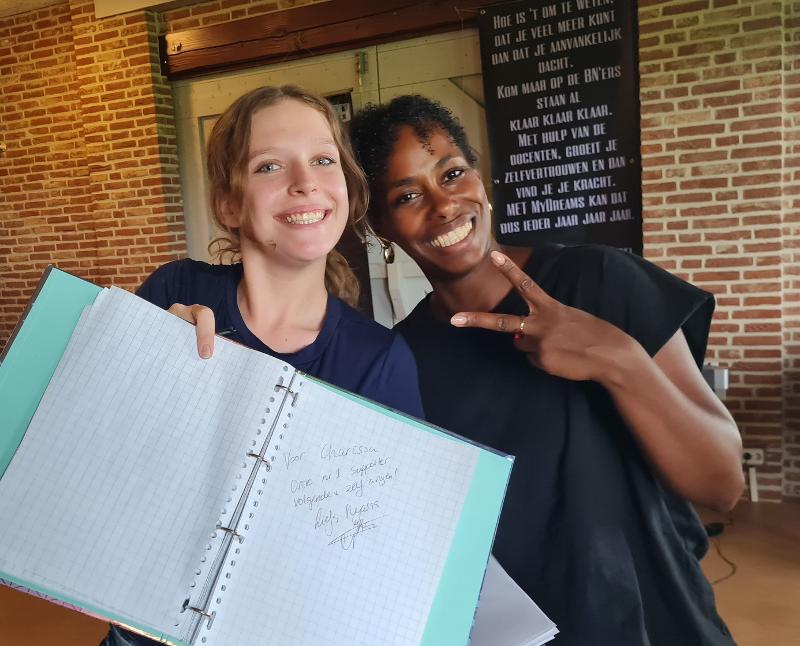 HOE IS 'T OM TE WETEN,
DAT JE VEEL MEER KUNT
DAN DAT JE AANVANKELIJK
DACHT.
KOM MAAR OP DE BN'ERS
STAAN AL
KLAAR KLAAR KLAAR.
MET HULP VAN DE
DOCENTEN, GROEIT JE
ZELFVERTROUWEN EN DAN
VIND JE JE KRACHT.
MET MYDREAMS KAN DAT
DUS IEDER JAAR JAAR JAAR.
Voor Charissa
Onze nr 1 supporter
volgende x zelf zingen!
Liefs,